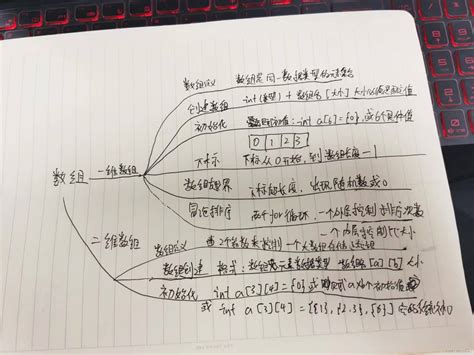 数组定义 数组是同一数据类型的元素集合
创建数组 int(类型) + 数组名 [大小]
初始化 int a[6] = {0}, 或6个具体值
0 1 2 3
数组 一维数组 下标 下标从0开始, 到数组长度-1
数组越界 下标超长度, 出现随机数或0
冒泡排序 两个for循环, 一个外层控制排序次数
一个内层控制比大小
二维数组 数组定义
数组创建 格式: 数组元素数据类型 数组名 [a] [b]
初始化 int a[3][4] = {0} 或
或 int a[3][4] = {{1}, {2,3}, {8}}